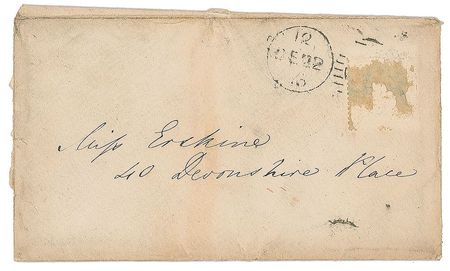 12
Miss Erskine
40 Devonshire Place